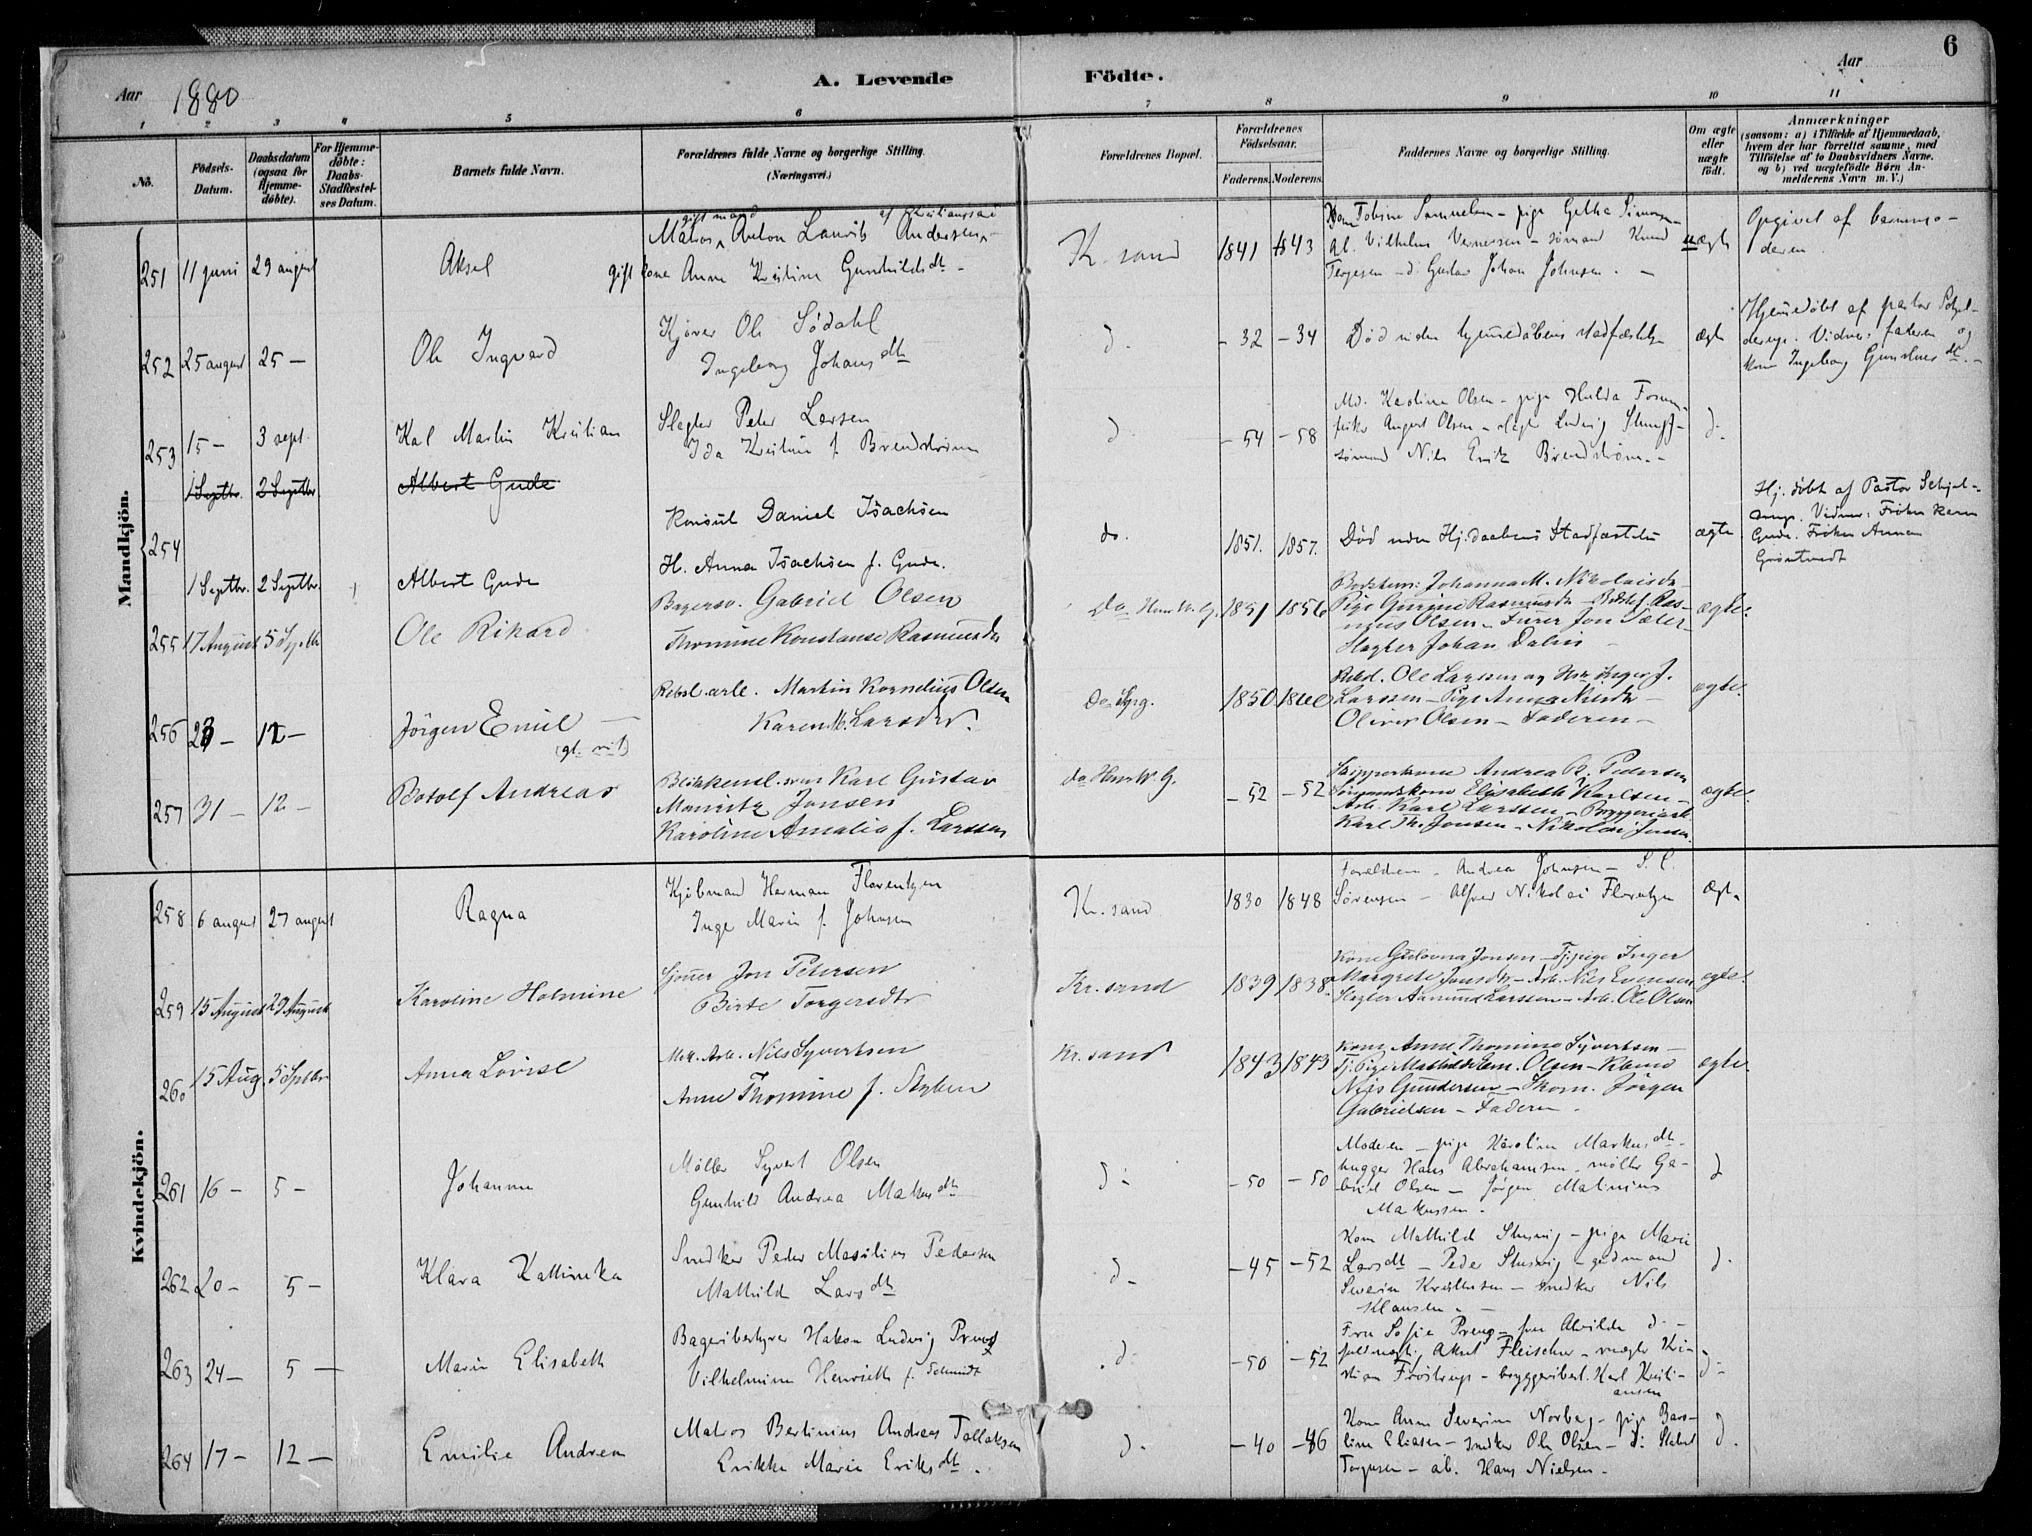 6
A. Levende Födte.
Aar 1880
Aar
1 2 3 4 5 6 7 8 9 10 11
No.
Födsels-
Datum.
Daabsdatum
(ogsaa for
Hjemme-
døbte).
For Hjemme-
døbte:
Daabs-
Stadfæstel-
ses Datum.
Barnets fulde Navn.
Forældrenes fulde Navne og borgerlige Stilling.
(Næringsvei.)
Forældrenes Bopæl.
Forældrenes
Fødselsaar.
Faderens. Moderens.
Faddernes Navne og borgerlige Stilling.
Om ægte
eller
uægte
født.
Anmærkninger
(saasom: a) i Tilfælde af Hjemmedaab,
hvem der har forrettet samme, med
Tilføielse af to Daabsvidners Navne,
og b) ved uægtefødte Børn An-
melderens Navn m. V.)
Mandkjön.
251 11 juni 29 august Aksel
gift mand af Kristianssand
Matros Anton Laurits Andersen
gift kone Anne Kristine Gunhildsdt.
K. sand 1841 1843
Tobine Samuelsen - pige Gethe Simon-
Vilhelm Vernersen - sømand Knud
Tergesen - d: Gustav Johan Johnsen.
uægte
Opgivet af barnemo-
deren
252 25 august 25 - Ole Ingvard
Ole Sødahl
Ingeborg Johans dt
d. - 32 - 34
Død uden hjemmedåbens stadfæstelse
ægte
Hjemmedøbt af pastor Schjel-
derup. Vidner: faderen og
kone Ingeborg dt. -
253 15 - 3 sept. Kal Martin Kristian
Slagter Peter Larsen
Ida Kristine f. Brendstrøm
d - 54 - 58
Md. Karoline Olsen - pige Hulda
August Olsen - slagter Ludvig
sømand Nils Erik Brendstrøm. -
d.
1 Septbr. 2 Septbr. Albert Gude
254 1 Septbr. 2 Septbr. Albert Gude
Konsul Daniel Isachsen
H. Anna Isachsen f. Gude.
do. 1851. 1857.
Død uden Hj.daabens Stadfæstelse
ægte
Hj. døbt af Pastor Schjel-
derup. Vidner: Frøken Karen
Gude. Frøken Anna
255 17 August 5 Septbr Ole Rikard
Bagersv. Gabriel Olsen
Thomine Konstanse Rasmusdtr
Do 1851 1856
Johanna M. Nikolaisdtr -
Pige Gurine Rasmusdtr - Ras-
mus Olsen - Furer Jon Sæter -
Slagter Johan Dalin -
ægte.
256 23 - 12 - Jörgen Emil
Rebsl. arb. Martin Kornelius Olsen
Karen M. Larsdtr.
Do 1850
Rebsl. Ole Larssen og Inger J.
Larssen - Pige Anna
Oliver Olsen - Faderen -
ægte.
257 31 - 12 - Botolf Andreas
Blikkensl. sven Karl Gustav
Mauritz Jonsen
Karoline Amalia f. Larssen
do - 52 - 52
Skipperkone Andrea B. Pedersen
Elisabeth Karlsen -
Arb. Karl Larssen - Bryggeriarb.
Karl Th. Jonsen - Nikolai Jonsen
ægte.
Kvindekjön.
258 6 august 27 august Ragna
Kjøbmand Herman Florentzen
Inge Marie f. Johnsen
Kr. sand 1830 1848
Forældrene - Andrea Johnsen - S. C.
Sørensen - Alfred Nikolai Florentzen
ægte
259 15 August 29 August Karoline Holmine
Jon Petersen
Birte Torgersdtr
Kr. sand 1839 1838.
Kone Gulovna Jonsen - Tj.pige Inger
Margrete Jonsdtr - Arb. Nils Evensen
Slagter Aamund Larssen - Arb. Ole Olsen
ægte.
260 15 Aug. 5 Septbr Anna Lovise
Mek. Arb. Nils Syvertsen
Anne Thomine f.
Kr. sand 1843 1843
Kone Anne Thomine Syvertsen -
Tj. Pige Mathilde Olsen -
Nils Gundersen - Skom. Jörgen
Gabrielsen - Faderen.
ægte.
261 16 - 5 - Johanne
Møller Syvert Olsen
Gunhild Andrea Makus dt
d - - 50 - 50
Moderen - pige Karoline Markus dt -
hugger Hans Abrahamsen - møller Ga-
briel Olsen - Jørgen Matinius
Makussen.
d
262 20 - 5 - Klara Kattinka
Snedker Peder Masilius Pedersen
Mathild Lars dt
d - - 45 - 52
Kone Mathild - pige Marie
Larsdt - Peder - gårdmand
Severin - snedker Nils
Klausen. -
d.
263 24 - 5 - Marie Elisabeth
Bageribestyrer Hakon Ludvig Preus
Vilhelmine Henriette f. Schmidt
d. - 50 - 52
Fru Sofie Preus - fru Alvilde d. -
fuldmægtig Aksel Fleischer - mægler Kri-
stian Frøstrup - bryggeribest. Karl Kristi-
ansen
d -
264 17 - 12 - Emilie Andrea
Matros Bertinius Andreas Tallaksen
Erikke Marie Eriks dt.
d. - 40 - 46
Kone Anne Severine Norberg - pige Bar-
line Eliasen - snedker Ole Olsen - d:
Torgusen - ab. Hans Nielsen. -
d.